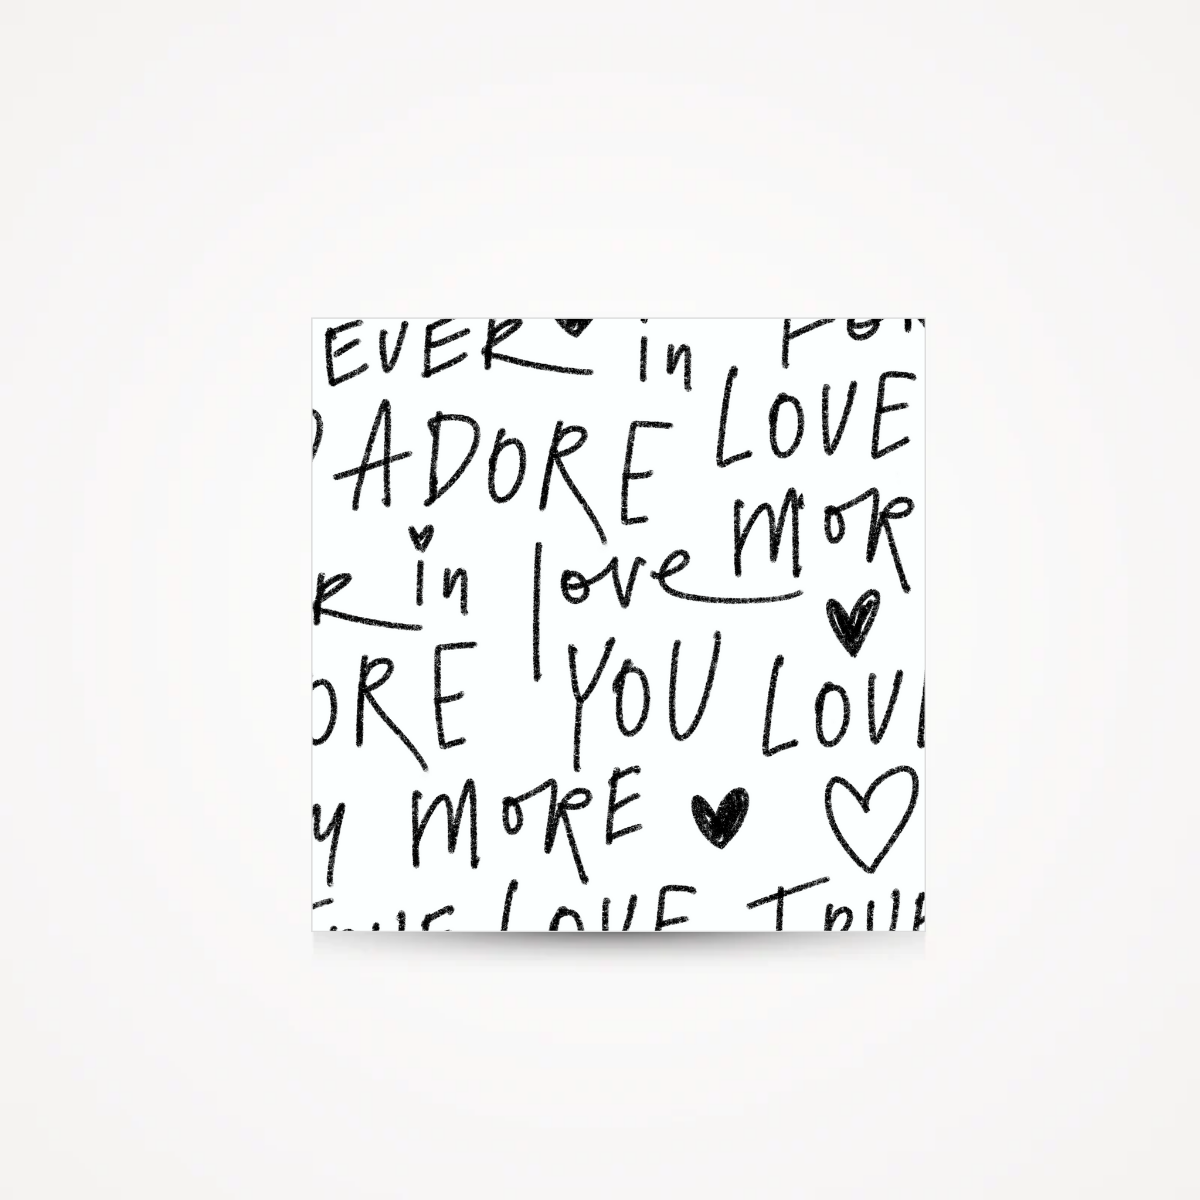 EVER in FOR
ADORE LOVE
R in love MOR
ORE YOU LOVE
y MORE
LOVE TRUE